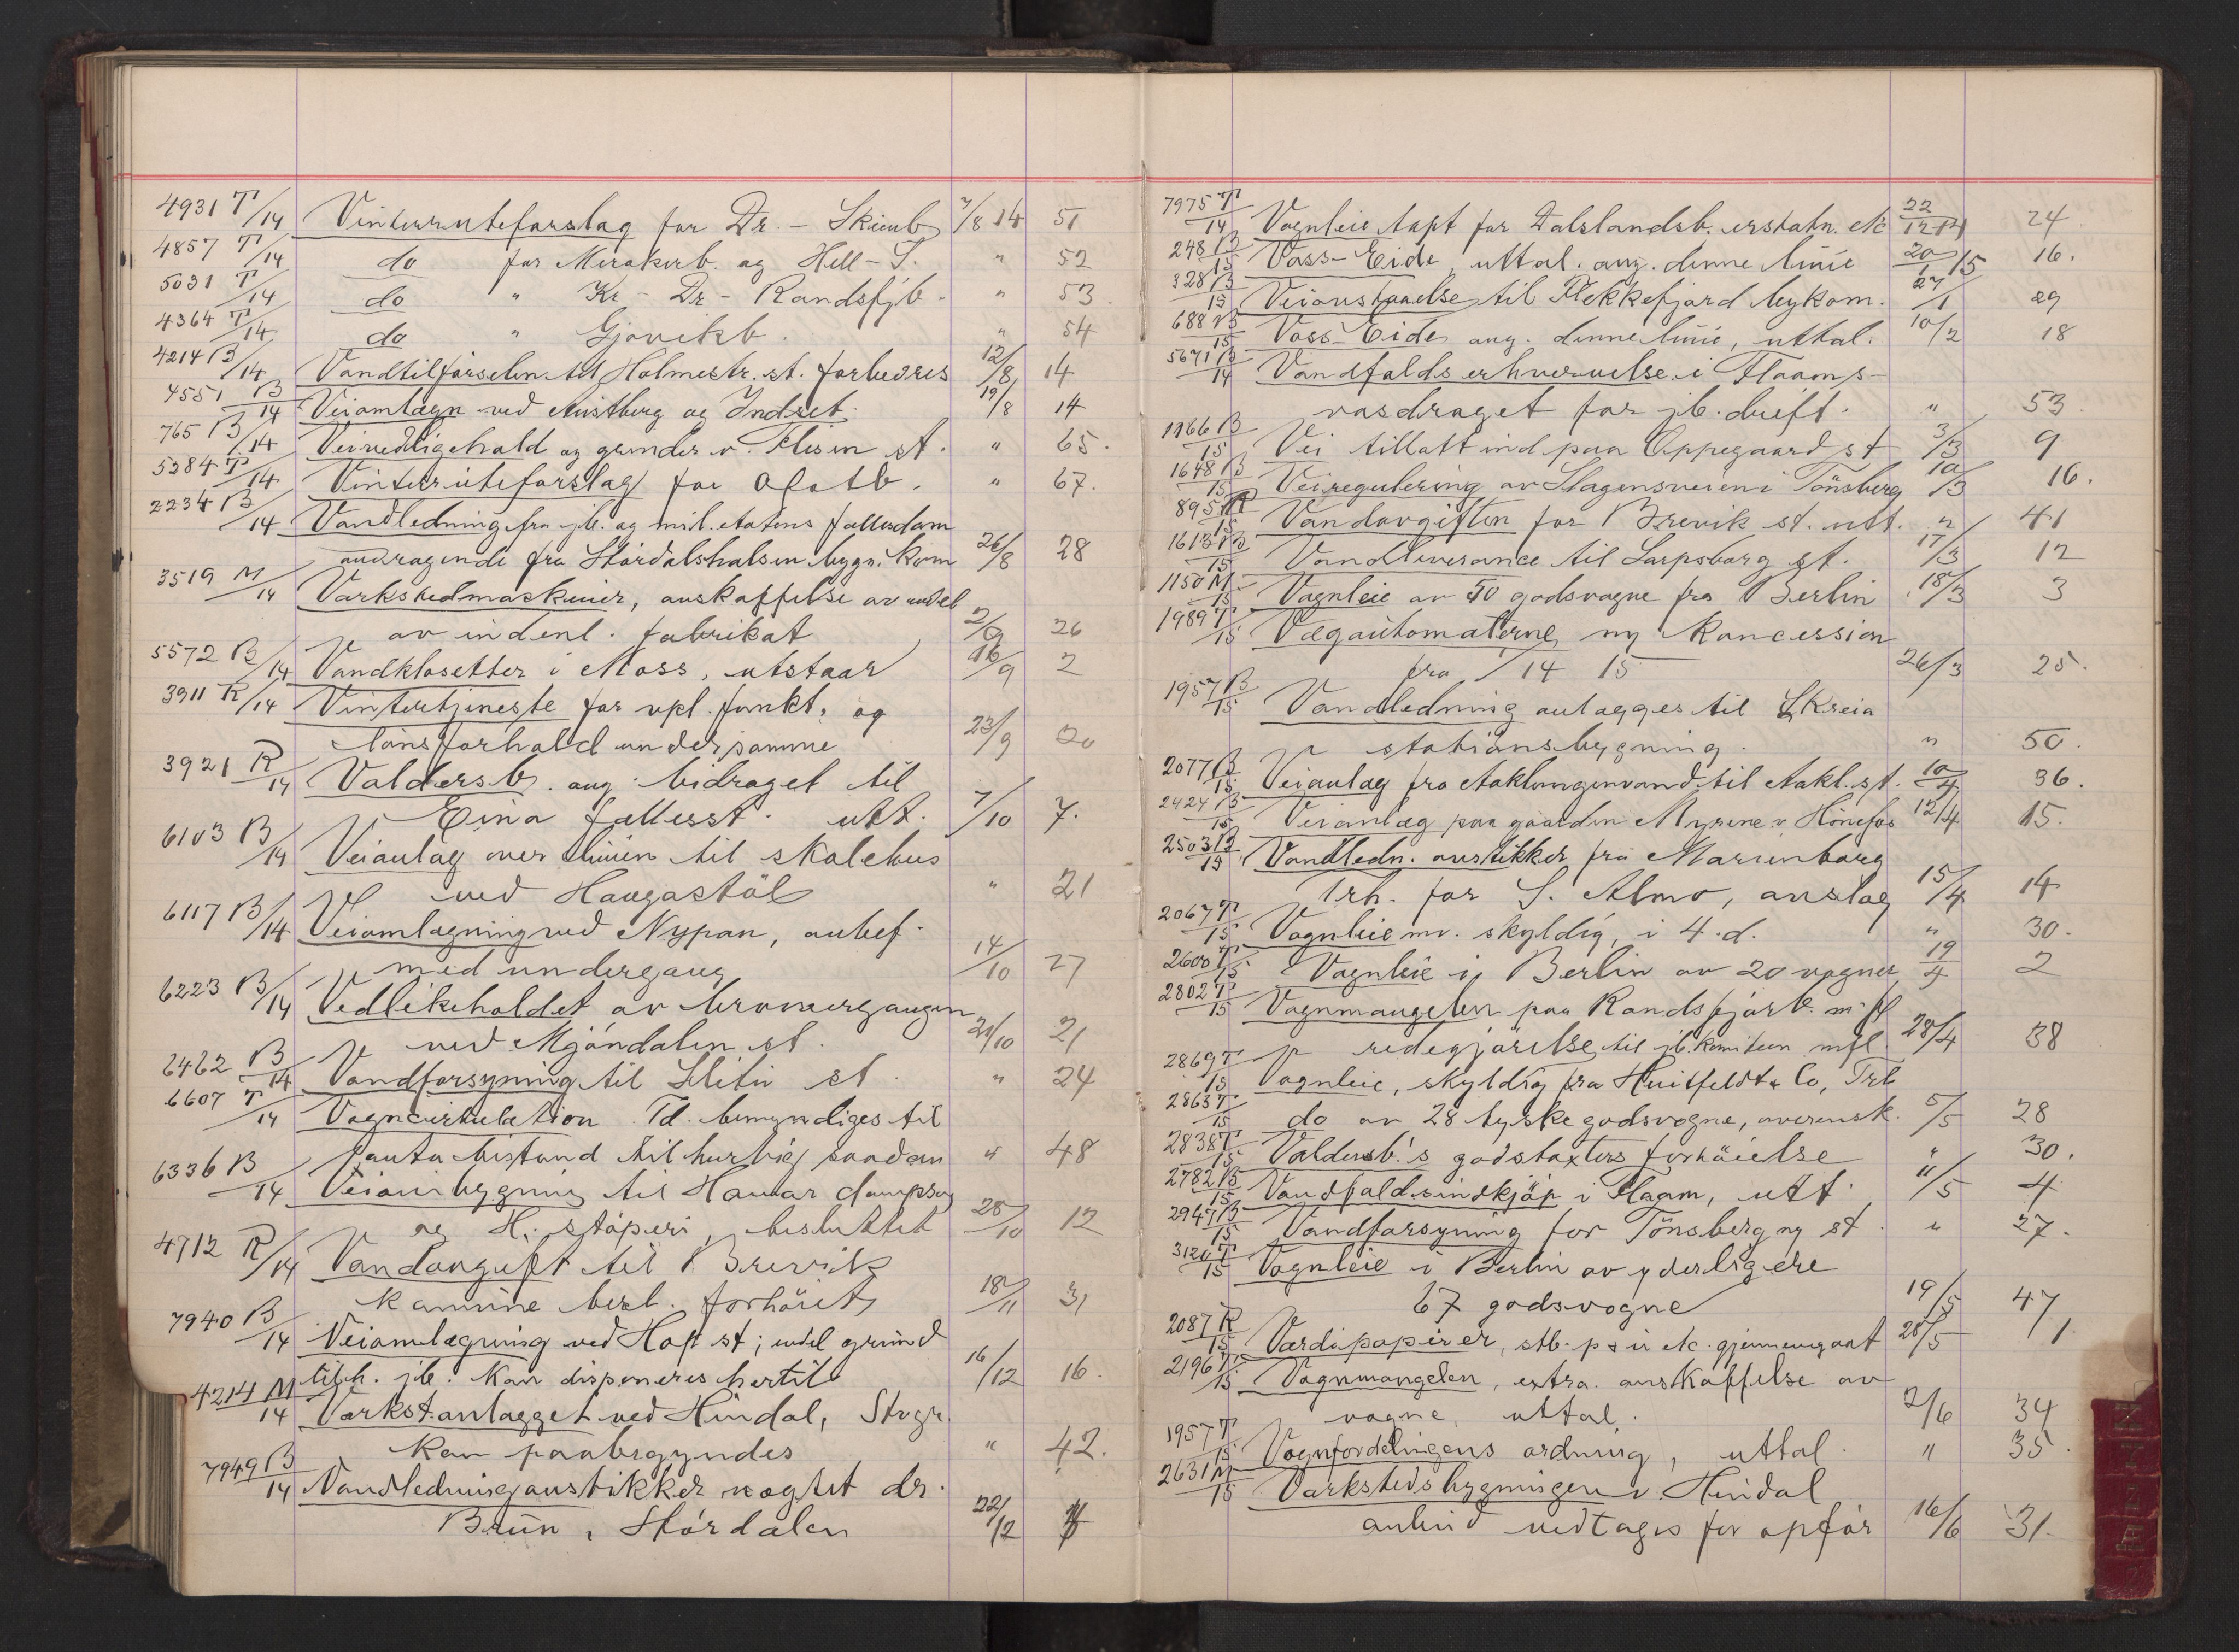 4931 T/14 Vinterruteforslag for Dr. - Skienb 7/8 14 51
4857 T/14 do for Merakerb. og Hell-S. " 52
5031 T/14 do " Kr - Dr - Randsfjb. " 53.
4364 T/14 do " Gjøvikb. " 54
4214 B/14 Vandtilførselen til Holmestr. st. forbedres 12/8 14
4551 B/14 Veiomlægn ved Austberg og Indset. 19/8 14
765 B/14 Veivedligehold og grinder v. Flisen st. " 65.
5284 T/14 Vinterruteforslag for Ofotb. " 67.
2234 B/14 Vandledning fra jb. og mil. etatens fællesdam
andragende fra Stördalshalsen bygn. kom 26/8 28
3519 M/14 Værkstedmaskiner, anskaffelse av endel
av indenl. fabrikat 2/9 26
5572 B/14 Vandklosetter i Moss, utstaar 16/9 2
3911 R/14 Vintertjeneste for upl. funkt. og
lönsforhold under samme 23/9 20
3921 R/14 Valdersb. ang. bidraget til
Eina fællesst. utt. 7/10 7.
6103 B/14 Veianlæg over linien til skolehus
ved Haugastöl " 21
6117 B/14 Veiomlægning ved Nypan, anbef.
med undergang 14/10 27
6223 B/14 Vedlikeholdet av broovergangen
ved Mjöndalen st. 21/10 21
6462 B/14 Vandforsyning til Slitu st. " 24
6607 T/14 Vogncirkulation. Td. bemyndiges til
6336 B/14 at anta bistand til hurtig saadan " 48
Veiombygning til Hamar dampsag
og H. støperi, besluttet 28/10 12
4712 R/14 Vandavgift til Brevik
kommune berl. forhöiet 18/11 31
7940 B/14 Veiomlægning ved Hof st; endel grund
tilh. jb. kan disponeres hertil 16/12 16.
4214 M/14 Værkst.anlægget ved Hindal, Stvgr.
kan paabegyndes " 42.
7949 B/14 Vandledningsanstikker nægtet dr.
Brun, Stördalen 22/12
7975 T/14 Vognleie tapt for Dalslandsb. erstatn. etc 22/12 14 24
248 B/15 Voss-Eide, uttal. ang. denne linie 20/1 15 16.
328 B/15 Veianstaaelse til Flekkefjord bykom. 27/1 29
688 B/15 Voss-Eide ang. denne linie, uttal. 10/2 18
5671 B/14 Vandfaldserhvervelse i Flaams-
vasdraget for jb. drift. " 53.
1166 B/15 Vei tillatt ind paa Oppegaard st 3/3 9
1648 B/15 Veiregulering av Slagensveien i Tönsberg 10/3 16.
895 R/15 Vandavgiften for Brevik st. utt. " 41
1613 B/15 Vandleverance til Sarpsborg st. 17/3 12
1150 M/15 Vognleie av 50 godsvogne fra Berlin 18/3 3
1989 T/15 Vægautomaterne, ny koncession
fra 1/4 15 26/3 25.
1957 B/15 Vandledning anlægges til Skreia
stationsbygning. " 50.
2077 B/15 Veianlæg fra Aaklungenvand til Aakl. st. 10/4 36.
2424 B/15 Veianlæg paa gaarden Myrene v. Hönefos 12/4 15.
2503 B/15 Vandledn. anstikker fra Marienborg
Trh. for S. Almo, avslag 15/4 14
2067 T/15 Vognleie mv. skyldig, i 4. d. " 30.
2600 T/15 Vognleie i Berlin av 20 vogner 19/4 2
2802 T/15 Vognmangelen paa Randsfjorb. m fl
redegjörelse til jb. komiteen mfl. 28/4 38
2869 T/15 Vognleie, skyldig fra Huitfeldt & Co, Trh
2863 T/15 do av 28 tyske godsvogne, overensk. 5/5 28
2838 T/15 Valdersb.'s godstaxters forhöielse " 30.
2782 B/15 Vandfaldsindkjöp i Flaam, utt. 11/5 4
2947 B/15 Vandforsyning for Tönsberg ny st. " 27.
3120 T/15 Vognleie i Berlin av yderligere
67 godsvogne 19/5 47
2087 R/15 Værdipapirer, stb. ps ir etc. gjennemgaat 28/5 1.
2196 T/15 Vognmangelen, extra. anskaffelse av
vogne, uttal. 2/6 34
1957 T/15 Vognfordelingens ordning, uttal. " 35.
2631 M/15 Værkstedsbygningen v. Hindal
anbud vedtages for opför 16/6 31.